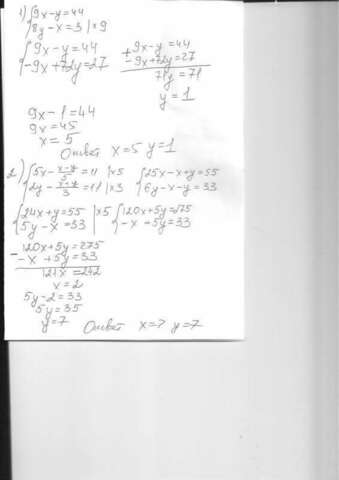 1) { 9x-y=44
8y-x=3 | x9
{ 9x-y=44
-9x+72y=27
+ 9x-y=44
-9x+72y=27
71y=71
y=1
9x-1=44
9x=45
x=5
Ответ x=5 y=1
2) { 5x-(x-y)/5=11 | x5
2y-(x+y)/3=11 | x3
{ 25x-x+y=55
6y-x-y=33
{ 24x+y=55 | x5
5y-x=33
{ 120x+5y=275
-x+5y=33
- 120x+5y=275
-x+5y=33
121x=242
x=2
5y-2=33
5y=35
y=7
Ответ x=? y=7